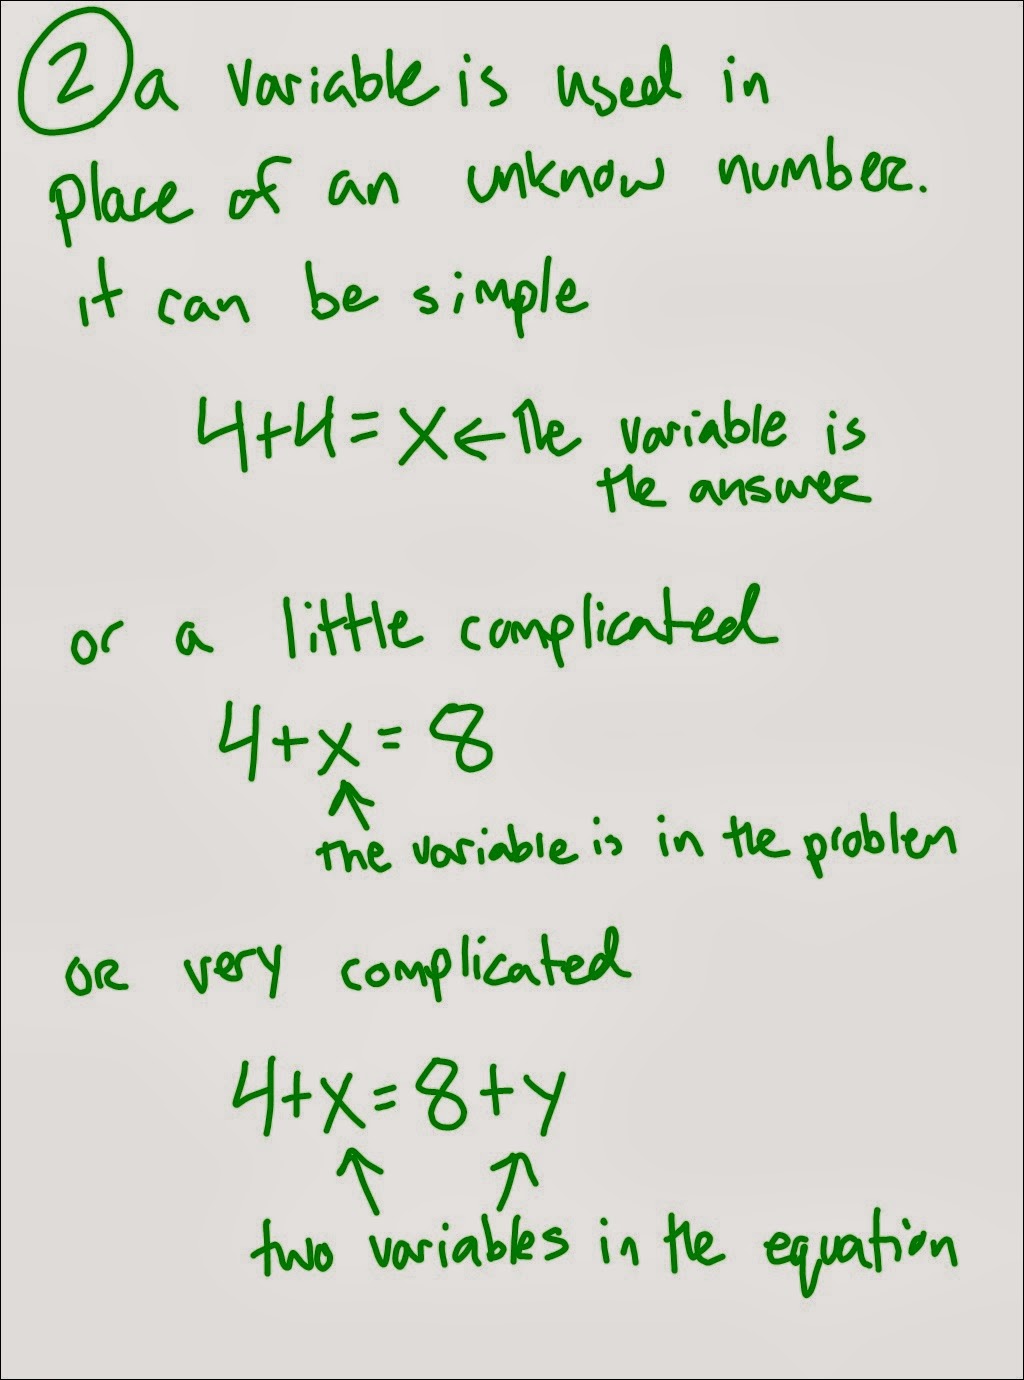 2 a variable is used in
place of an unknow number.
it can be simple
4+4=x← The variable is
the answer
or a little complicated
4+x=8
↑
the variable is in the problem
or very complicated
4+x=8+y
↑ ↑
two variables in the equation